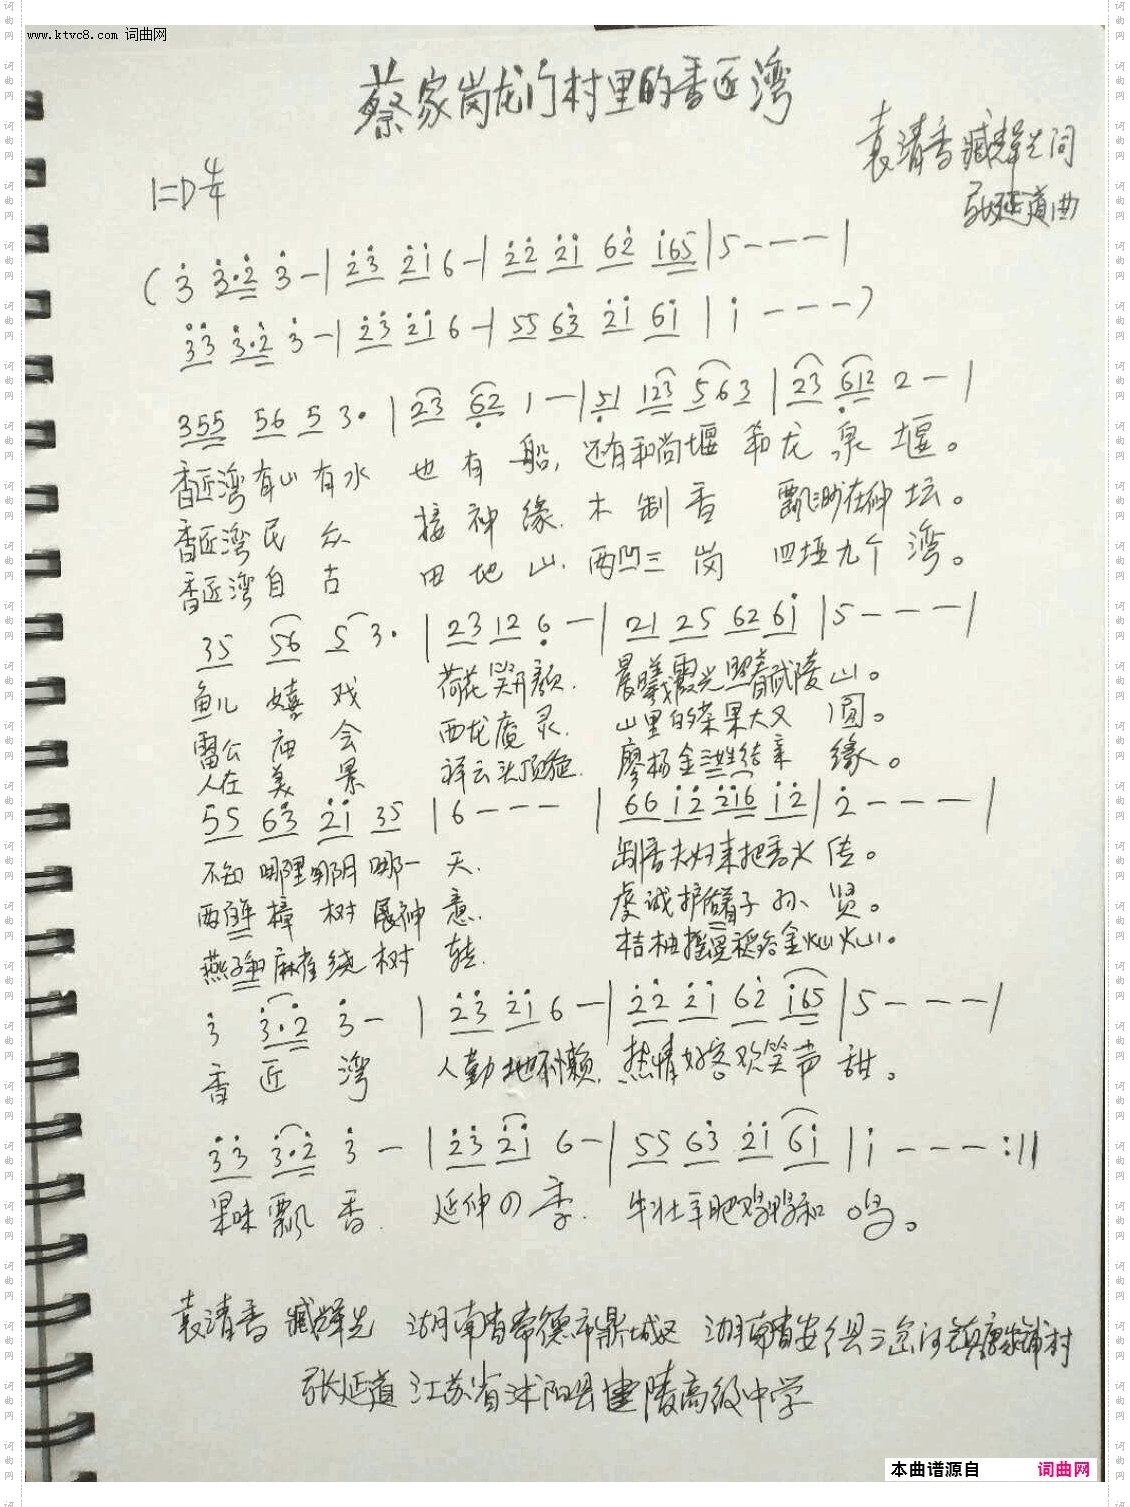 www.ktvc8.com 词曲网
蔡家岗龙门村里的香匠湾
袁清香 臧辉先词
1=D 4/4
张延道曲
( 3̇ 3̇·2̇ 3̇ - | 2̇3̇ 2̇1̇ 6 - | 2̇2̇ 2̇1̇ 62̇ 1̇65 | 5 - - - |
3̇3̇ 3̇·2̇ 3̇ - | 2̇3̇ 2̇1̇ 6 - | 55 63̇ 2̇1̇ 61̇ | 1̇ - - - )
355 56 5 3· | 23 6̣2 1 - | 5̣1 123 563 | 23 6̣12 2 - |
香匠湾有山有水 也有船, 还有和尚堰 和龙泉堰。
香匠湾民众 接神缘. 木制香 飘渺在神坛。
香匠湾自古 田地山. 两凹三岗 四垭九个湾。
35 56 5 3· | 23 12 6̣ - | 21 25 62 61̇ | 5 - - - |
鱼儿嬉戏 荷花笑开颜. 晨曦霞光照着武陵山。
雷公庙会 西龙庵灵. 山里的茶果大又圆。
人在美景 祥云头顶旋. 廖杨金洪姓结来缘。
55 63̇ 2̇1̇ 35 | 6 - - - | 66 1̇2̇ 2̇1̇6 1̇2̇ | 2̇ - - - |
不知哪里哪月哪一天. 制香夫妇来把香火传。
两颗樟树展神意. 虔诚护佑着子孙贤。
燕子和麻雀绕树转. 桔柚摇晃稻谷金灿灿。
3̇ 3̇·2̇ 3̇ - | 2̇3̇ 2̇1̇ 6 - | 2̇2̇ 2̇1̇ 62̇ 1̇65 | 5 - - - |
香匠湾 人勤地不懒. 热情好客欢笑声甜。
3̇3̇ 3̇·2̇ 3̇ - | 2̇3̇ 2̇1̇ 6 - | 55 63̇ 2̇1̇ 61̇ | 1̇ - - - :||
果味飘香. 延伸四季. 牛壮羊肥鸡鸭和鸣。
袁清香 臧辉先 湖南省常德市鼎城区 湖南省安乡县三岔河镇唐家铺村
张延道 江苏省沭阳县建陵高级中学
本曲谱源自 词曲网